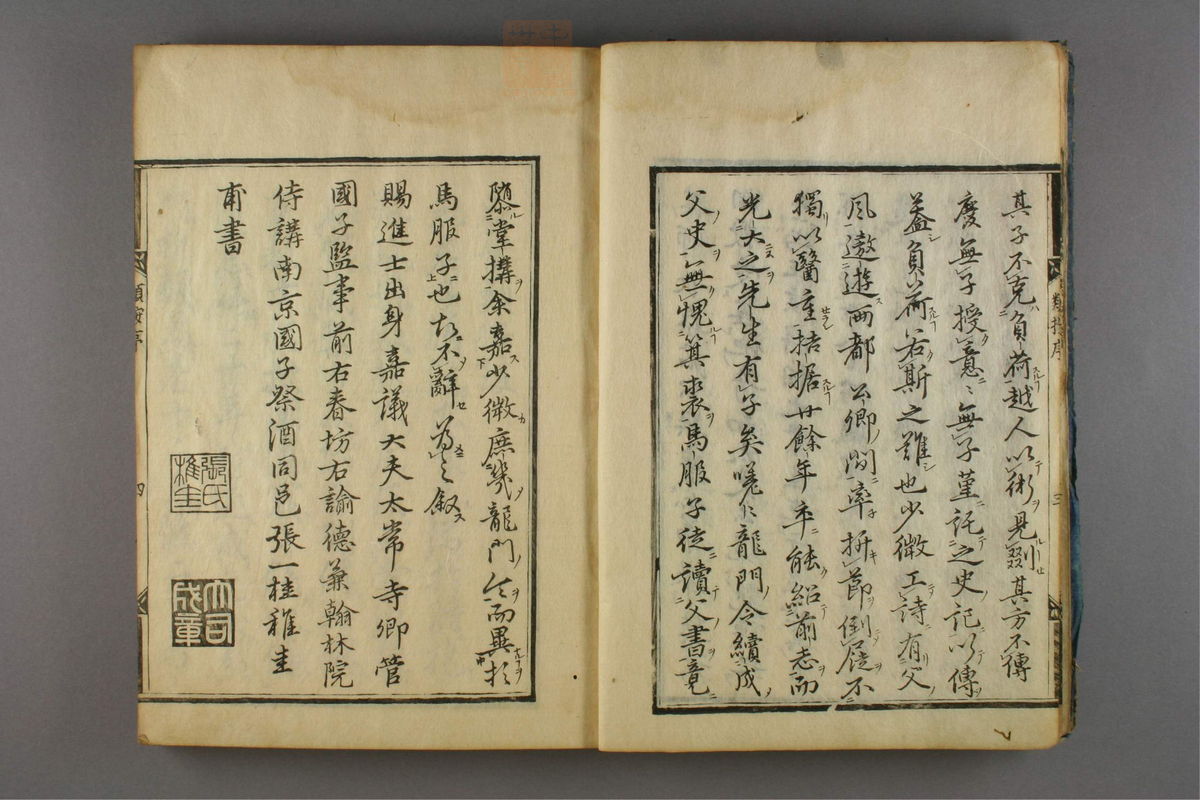 其子不克負荷越人以術見毉其方不傳
慶無子授意意無子堇託之史記以傳
蓋負荷若斯之難也少微工詩有父
風遨遊兩都公卿間率折節倒屣不
獨以醫重拮据廿餘年卒能紹前志而
光大之先生有子矣嗟嗟龍門令續成
父史無愧箕裘馬服子徒讀父書竟
隳堂搆余嘉少微庶幾龍門而異於
馬服子也故不辭為之敘
賜進士出身嘉議大夫太常寺卿管
國子監事前右春坊右諭德兼翰林院
侍講南京國子祭酒同邑張一桂稚圭
甫書
張氏稚圭
大司成章
三
四